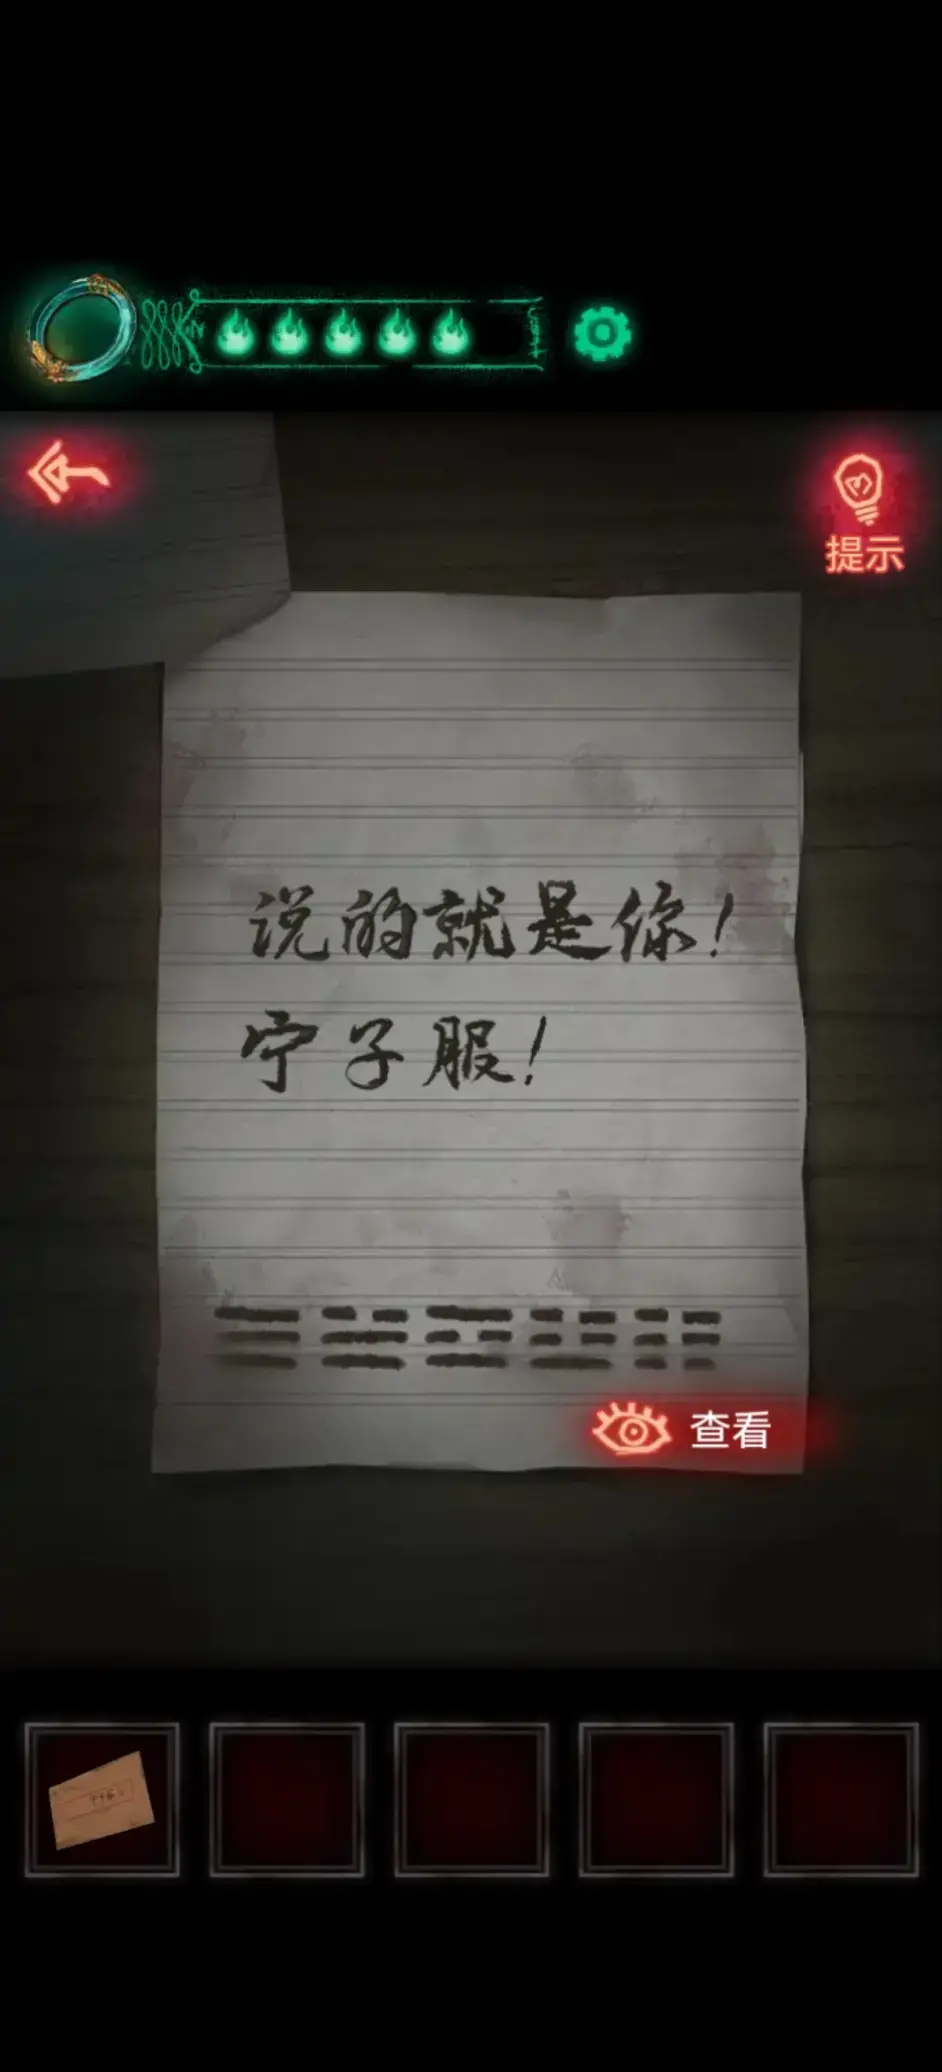 提示
说的就是你!
宁子服!
查看